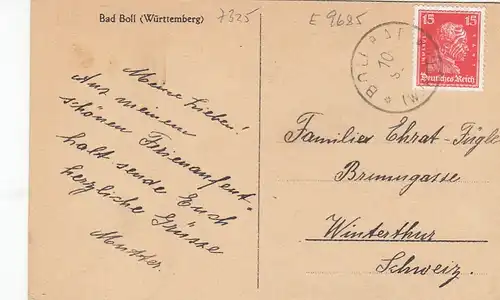 Bad Boll (Württemberg)
7325
E 9685
Meine Lieben!
Aus meinem
schönen Ferienaufent-
halt sende Euch
herzliche Grüsse
Mutter.
15 15
Deutsches Reich
BOLL
10.
Familie Ehrat-Fügl
Brunngasse
Winterthur
Schweiz.